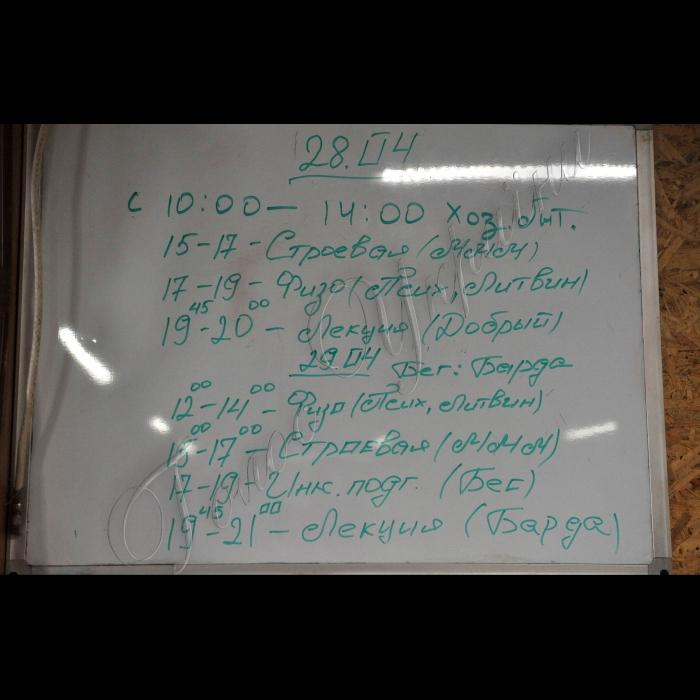 28.04
с 10:00 – 14:00 хоз. быт.
15-17 - Строевая (МММ)
17-19 - Физо (Псих, Литвин)
19 45 - 20 00 - Лекция (Добрый)
29.04 Бег: Барда
12 00 - 14 00 - Физо (Псих, Литвин)
15 00 - 17 00 - Строевая (МММ)
17-19 - Инж. подг. (Бег)
19 45 - 21 00 - Лекция (Барда)